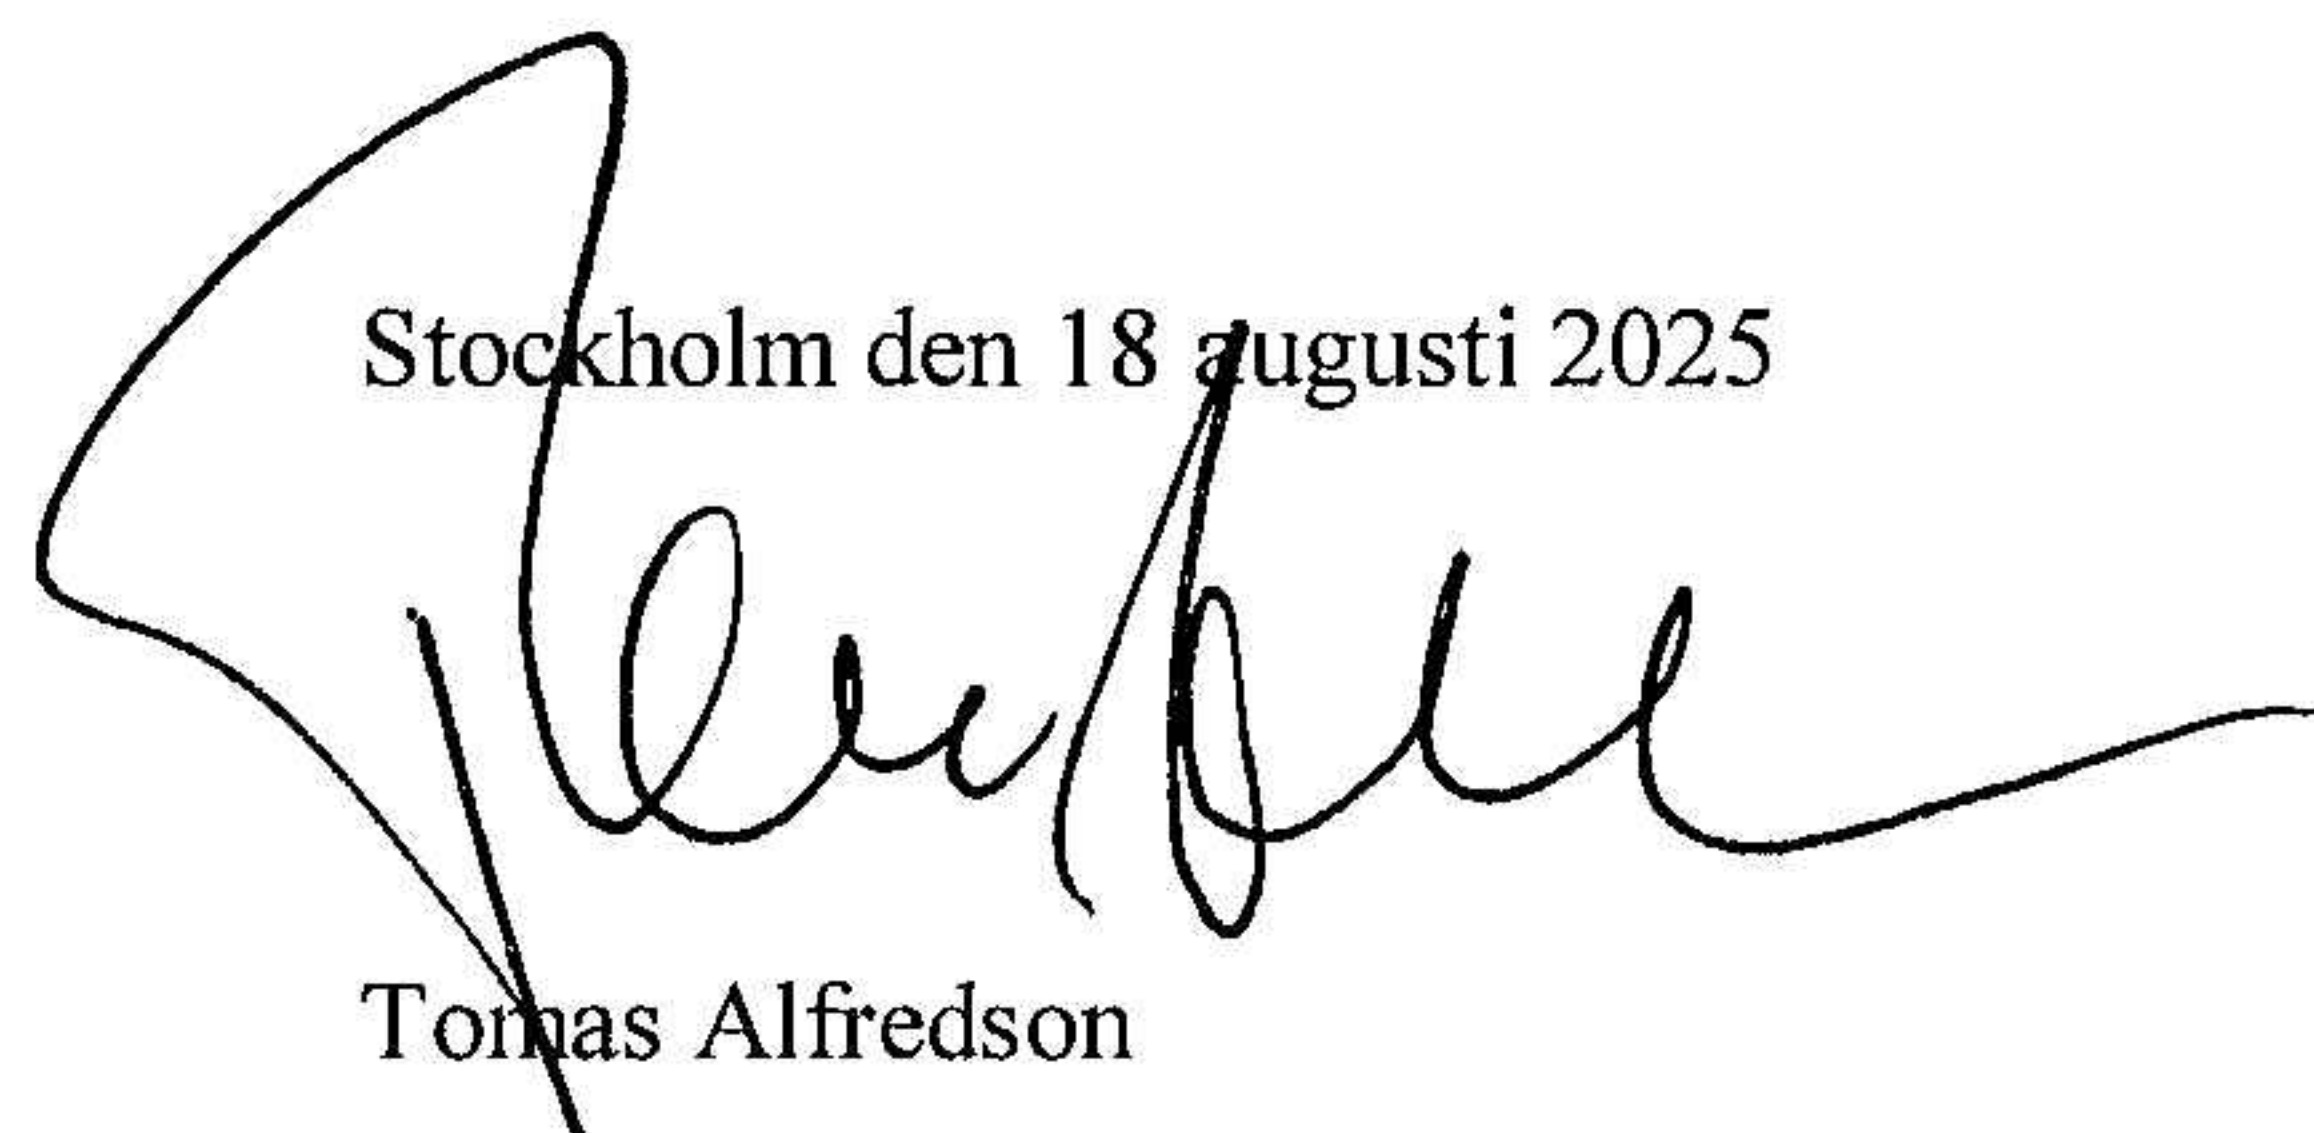 Stockholm den 18 augusti 2025
Tomas Alfredson